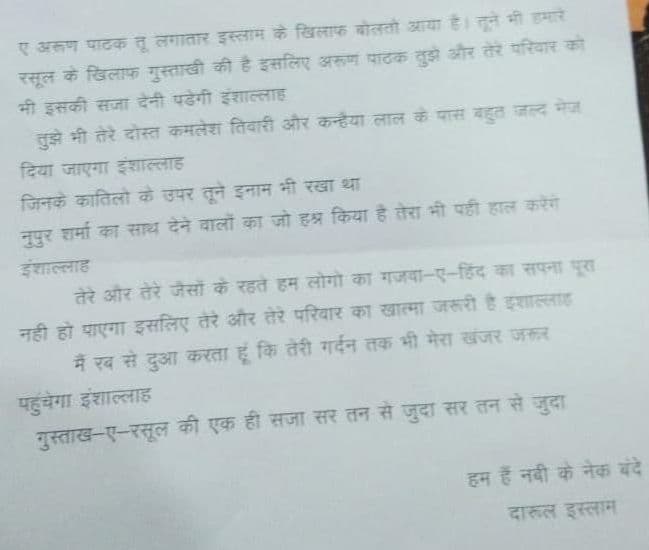 ए अरूण पाठक तू लगातार इस्लाम के खिलाफ बोलतो आया है। तूने भी हमारे
रसूल के खिलाफ गुस्ताखी की है इसलिए अरूण पाठक तुझे और तेरे परिवार को
भी इसकी सजा देनी पडेगी इंशाल्लाह
तुझे भी तेरे दोस्त कमलेश तिवारी और कन्हैया लाल के पास बहुत जल्द भेज
दिया जाएगा इंशाल्लाह
जिनके कातिलो के उपर तूने इनाम भी रखा था
नुपुर शर्मा का साथ देने वालों का जो हश्र किया है तेरा भी यही हाल करेंगे
इंशाल्लाह
तेरे और तेरे जैसों के रहते हम लोगो का गजवा–ए–हिंद का सपना पूरा
नही हो पाएगा इसलिए तेरे और तेरे परिवार का खात्मा जरूरी है इंशाल्लाह
मैं रब से दुआ करता हूं कि तेरी गर्दन तक भी मेरा खंजर जरूर
पहुंचेगा इंशाल्लाह
गुस्ताख–ए–रसूल की एक ही सजा सर तन से जुदा सर तन से जुदा
हम हैं नबी के नेक बंदे
दारूल इस्लाम